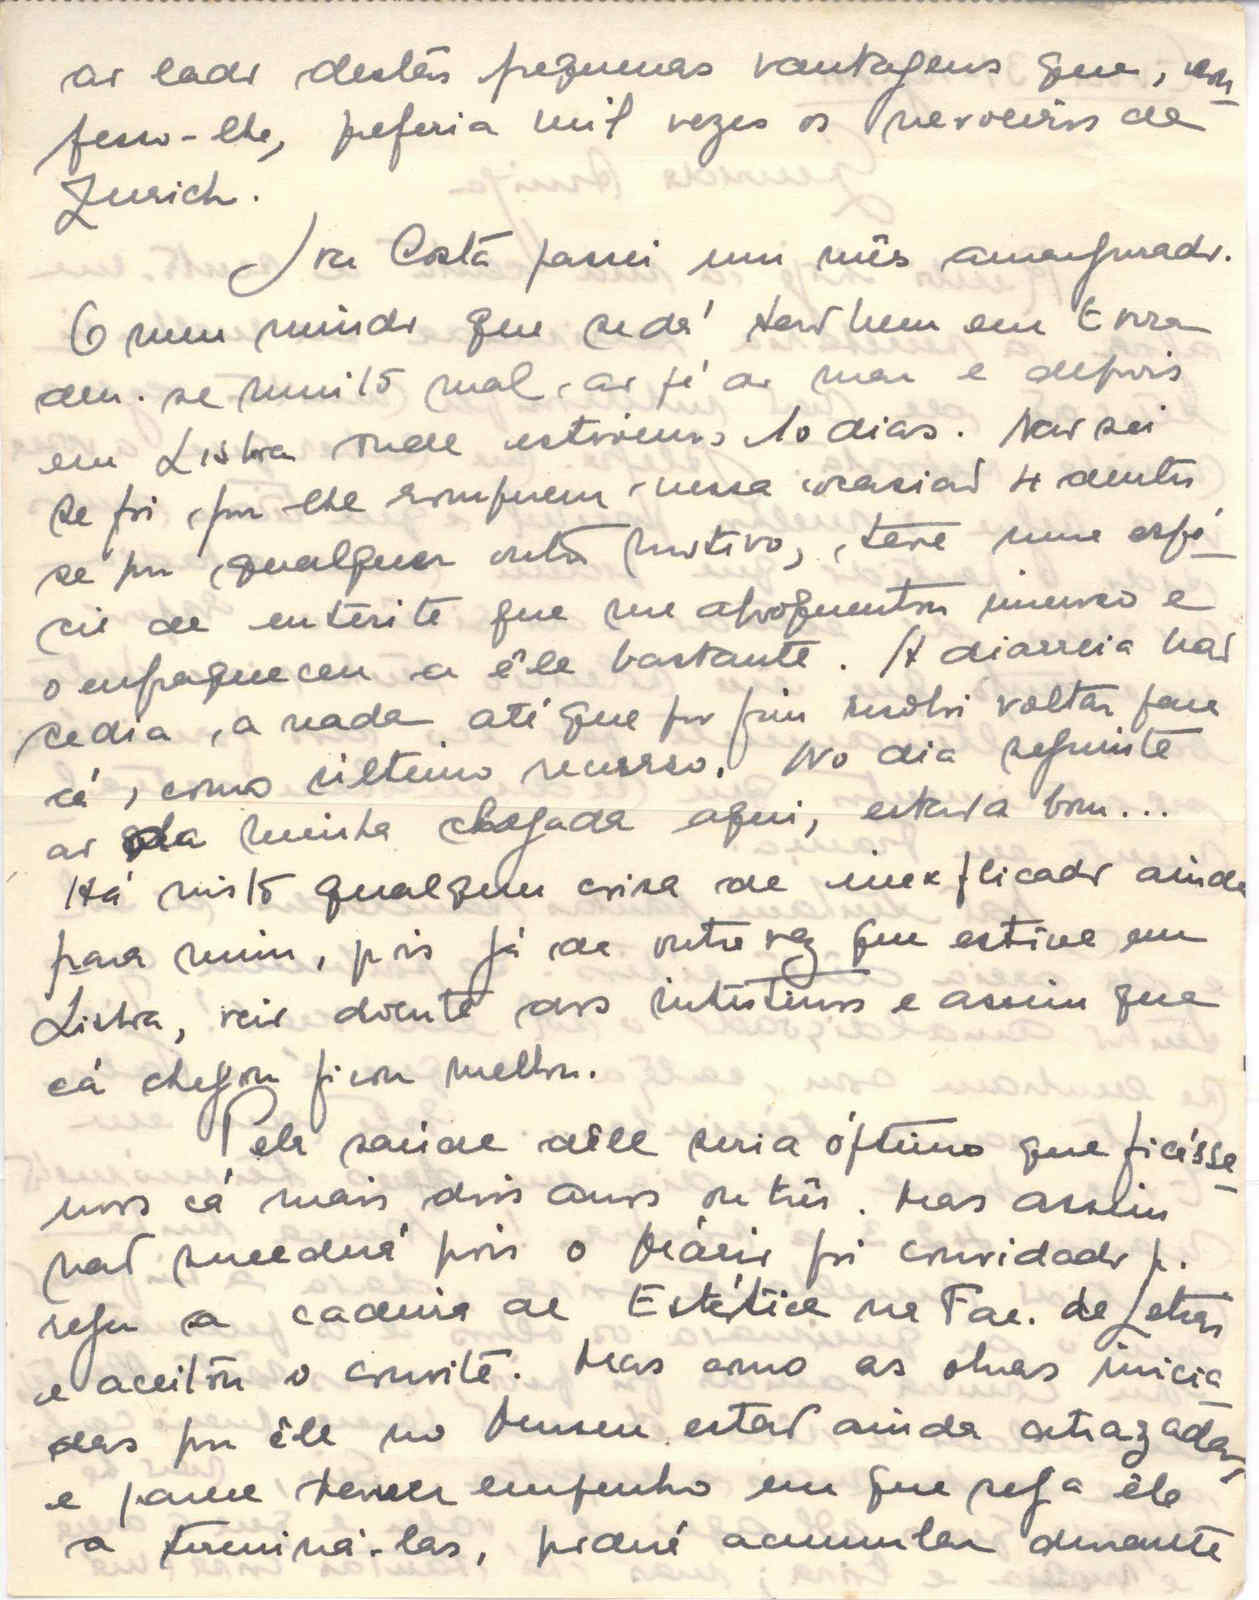 ao lado destas pequenas vantagens que, con-
fesso-lhe, preferia mil vezes os nevoeiros de
Zurich.
Na Costa passei um mês amargurado.
O meu miúdo que se dá tão bem em Evora
deu-se muito mal, ao pé do mar e depois
em Lisboa onde estivemos 10 dias. Não sei
se foi, por lhe romperem nessa ocasião 4 dentes
se por qualquer outro motivo, teve uma espé-
cie de enterite que me apoquentou imenso e
o enfraqueceu a êle bastante. A diarreia não
cedia, a nada até que por fim resolvi voltar para
cá, como último recurso. No dia seguinte
ao da minha chegada aqui, estava bom...
Há nisto qualquer coisa de inexplicado ainda
para mim, pois já da outra vez que estive em
Lisboa, veio doente dos intestinos e assim que
cá chegou ficou melhor.
Pela saúde dêle seria óptimo que ficásse-
mos cá mais dois anos ou três. Mas assim
não sucederá pois o Mário foi convidado p.
reger a cadeira de Estética na Fac. de Letras
e aceitou o convite. Mas como as obras inicia
das por êle no Museu estão ainda atrazadas
e parece haver empenho em que seja êle
a terminá-las, poderá acumular durante